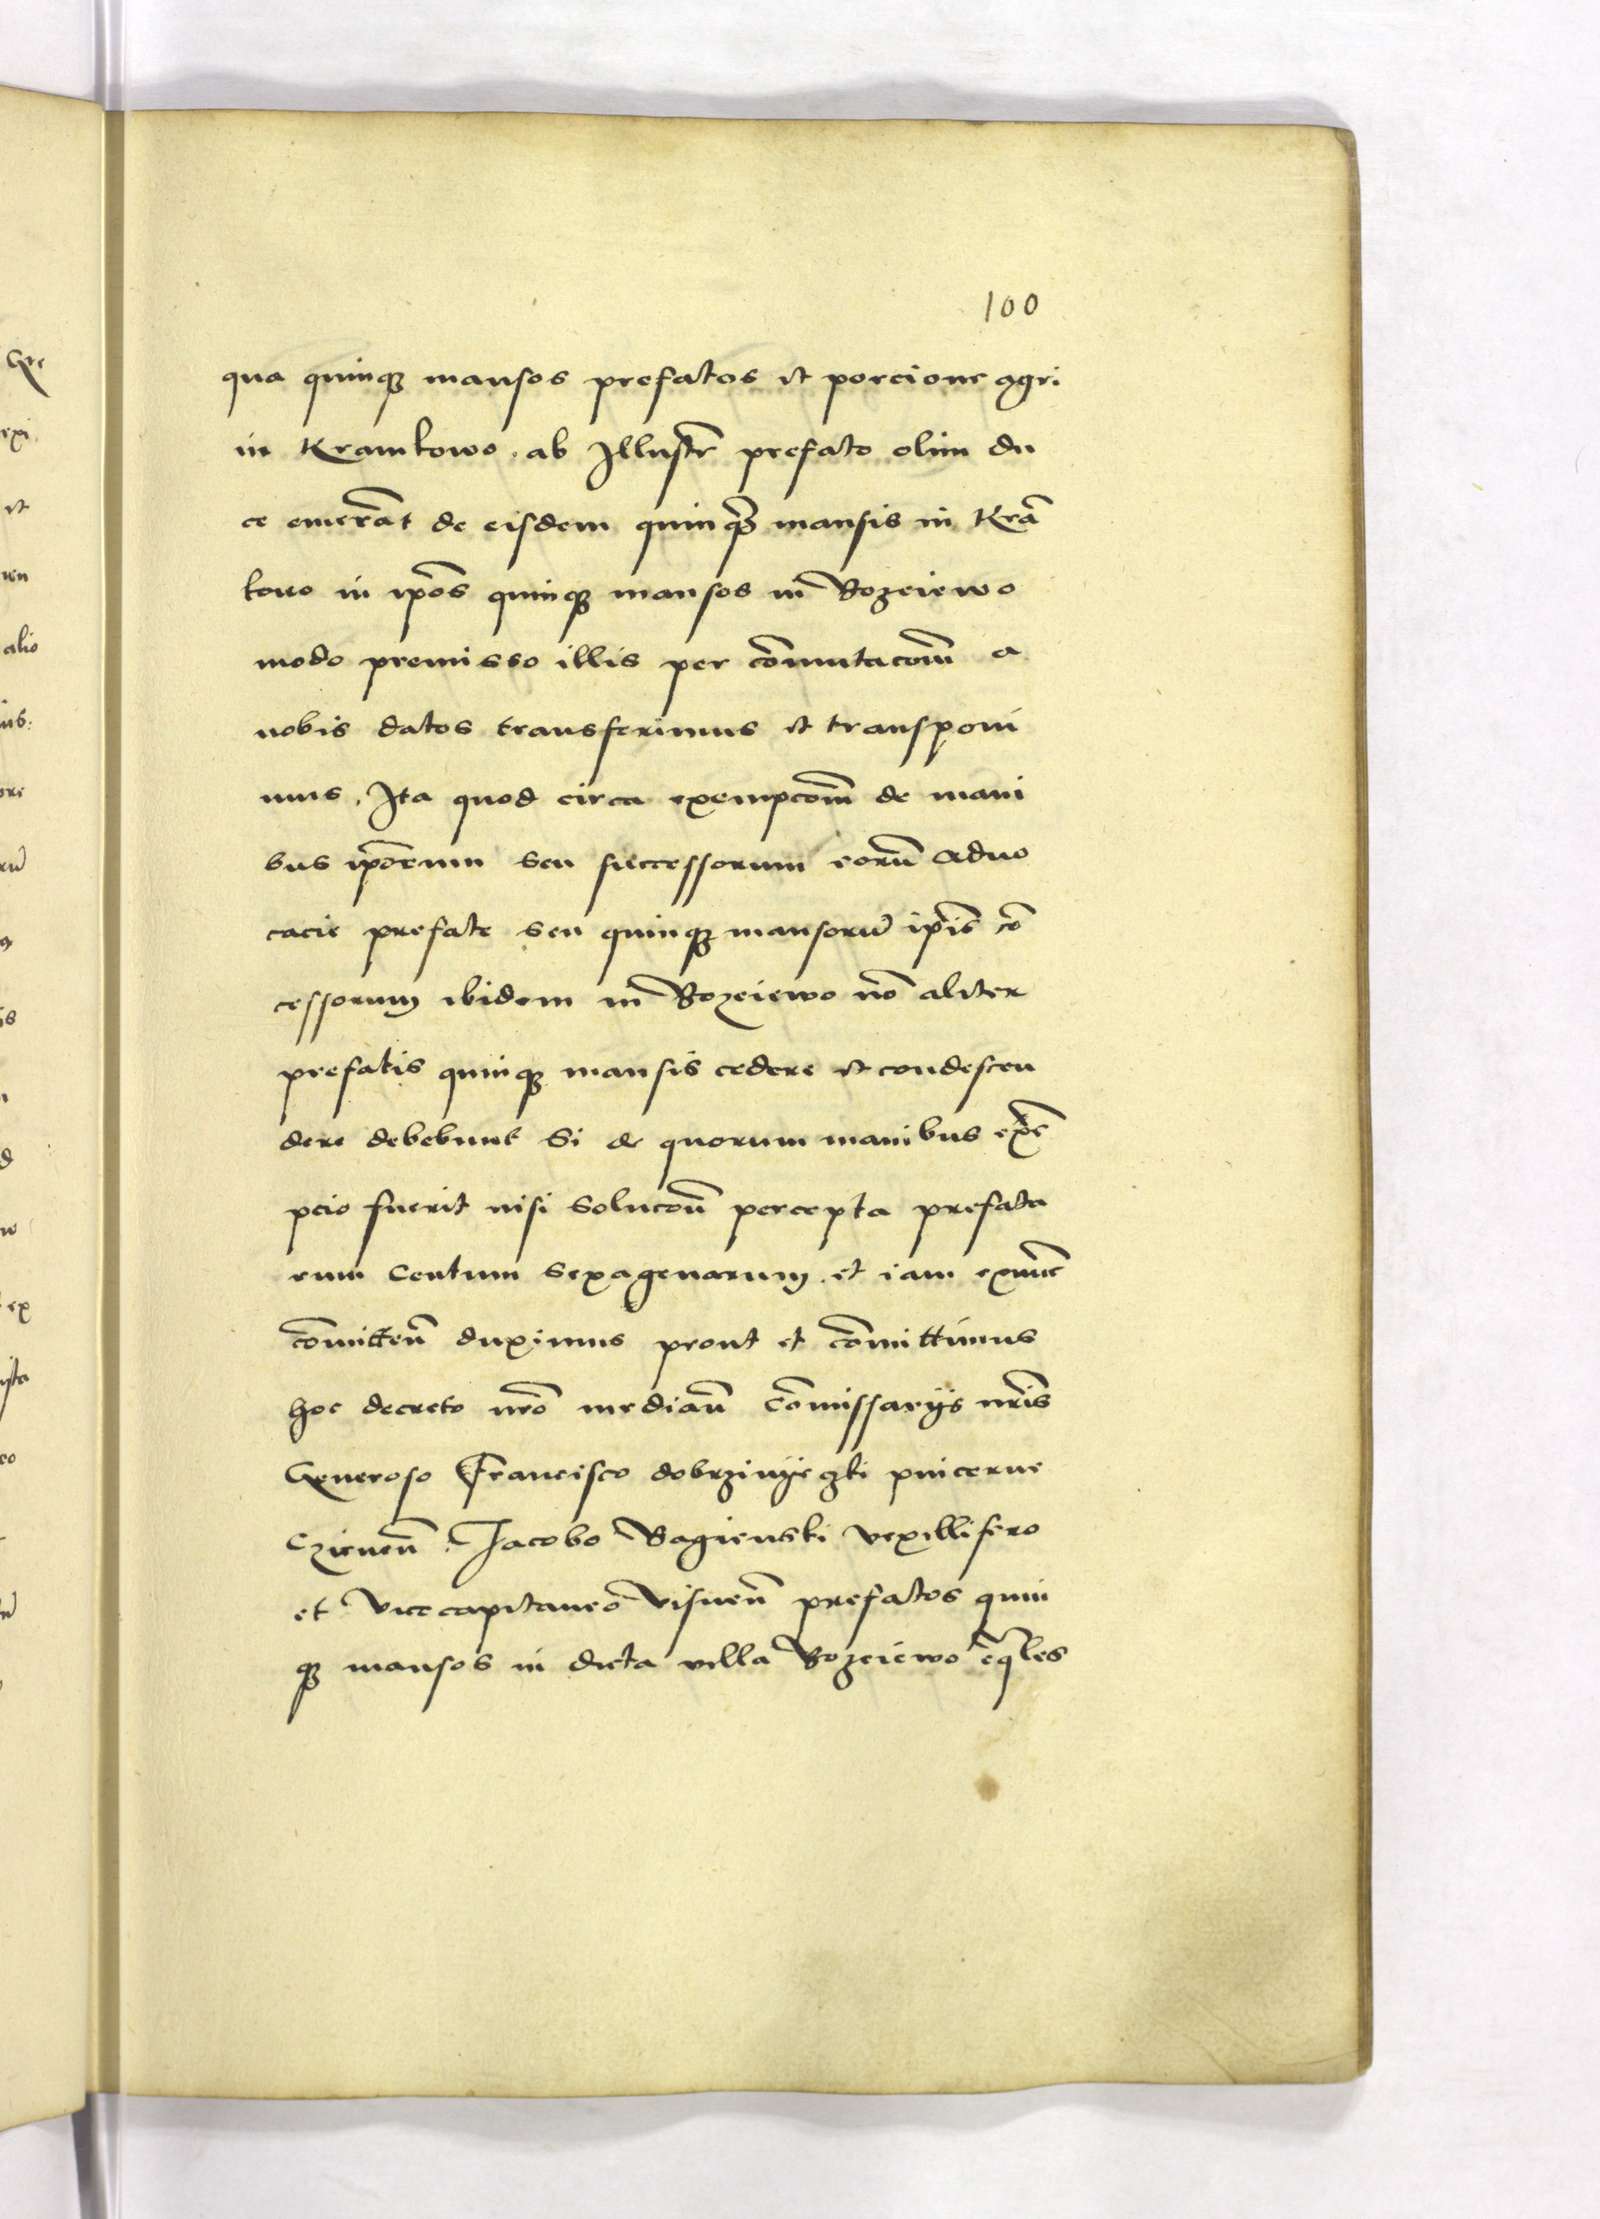 100
qua quinq mansos prefatos et porcione agri
in Kramkowo . ab Illustr̃ prefato olim du
ce emerãt de eisdem quinq̃ mansis in Krã
kowo in ip̃os quinq mansos in Bozeiewo
modo premisso illis per cõmutacom̃ a
nobis datos transferimus et transponi
mus . Ita quod circa exempcom̃ de mani
bus ip̃orum seu successorum eorũ aduo
cacie prefate seu quinq mansorũ ip̃is cõ
cessorum ibidem in Bozeiewo nõ aliter
prefatis quinq mansis cedere et condescen
dere debebunt Si de quorum manibus exẽ
pcio fuerit nisi solucoñ percepta prefata
rum Centum sexagenarum . et iam
cõmitteñ duximus prout et cõmittimus
hoc decreto nr̃o mediañ Cõmissarijs nr̃is
Generoso Francisco dobrzinyeczki pincerne
Czieneñ . Jacobo Bagienski vexillifero
et vicecapitaneo visneñ prefatos quin
q mansos in dicta villa Bozeiewo eq̃les